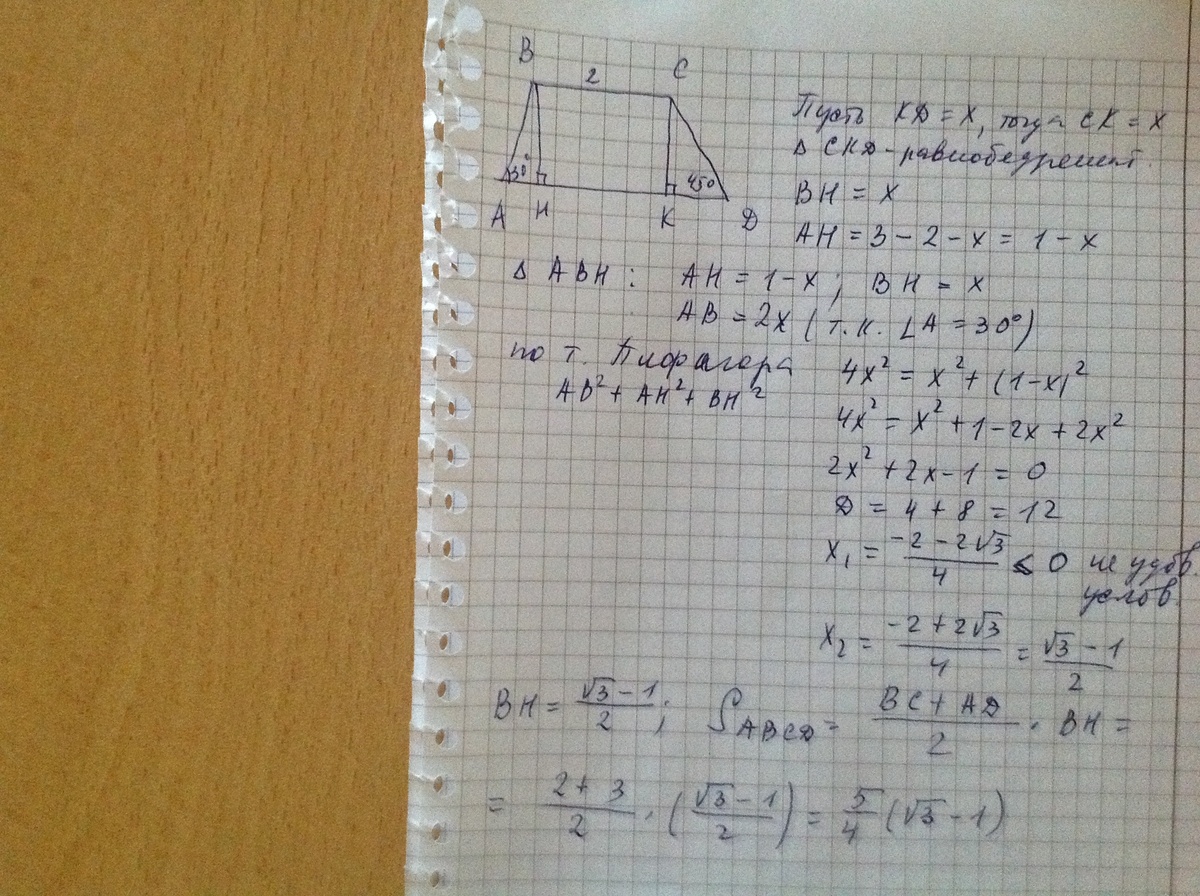 B 2 C
30° 45°
A H K D
Пусть KD = x, тогда CK = x
Δ CKD - равнобедренный.
BH = x
AH = 3 - 2 - x = 1 - x
Δ ABH : AH = 1-x ; BH = x
AB = 2x ( т.к. ∠A = 30°)
по т. Пифагора
AB² + AH² + BH²
4x² = x² + (1-x)²
4x² = x² + 1 - 2x + 2x²
2x² + 2x - 1 = 0
D = 4 + 8 = 12
x₁ = (-2 - 2√3)/4 < 0 не удов.
услов.
x₂ = (-2 + 2√3)/4 = (√3 - 1)/2
BH = (√3 - 1)/2 ; S_ABCD = (BC + AD)/2 · BH =
= (2 + 3)/2 · ((√3 - 1)/2) = 5/4 (√3 - 1)